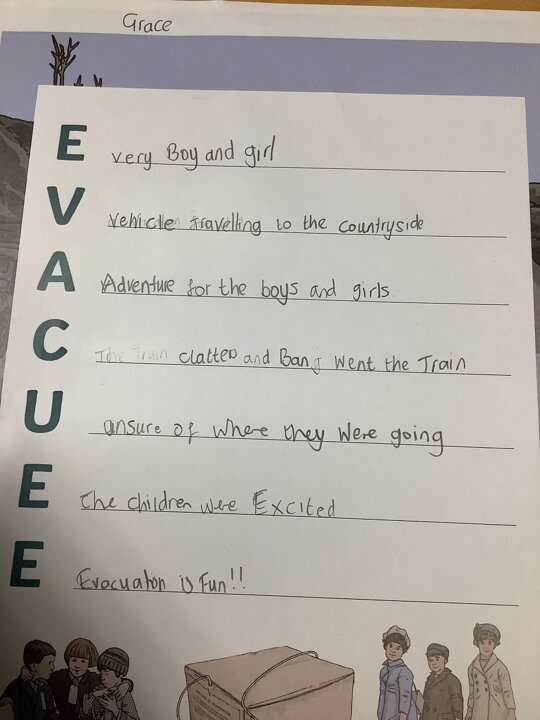 Grace
E very Boy and girl
V Vehicle travelling to the countryside
A Adventure for the boys and girls.
C The Train clatted and Bang Went the Train
U unsure of where they Were going
E The children were Excited
E Evacuation is Fun!!